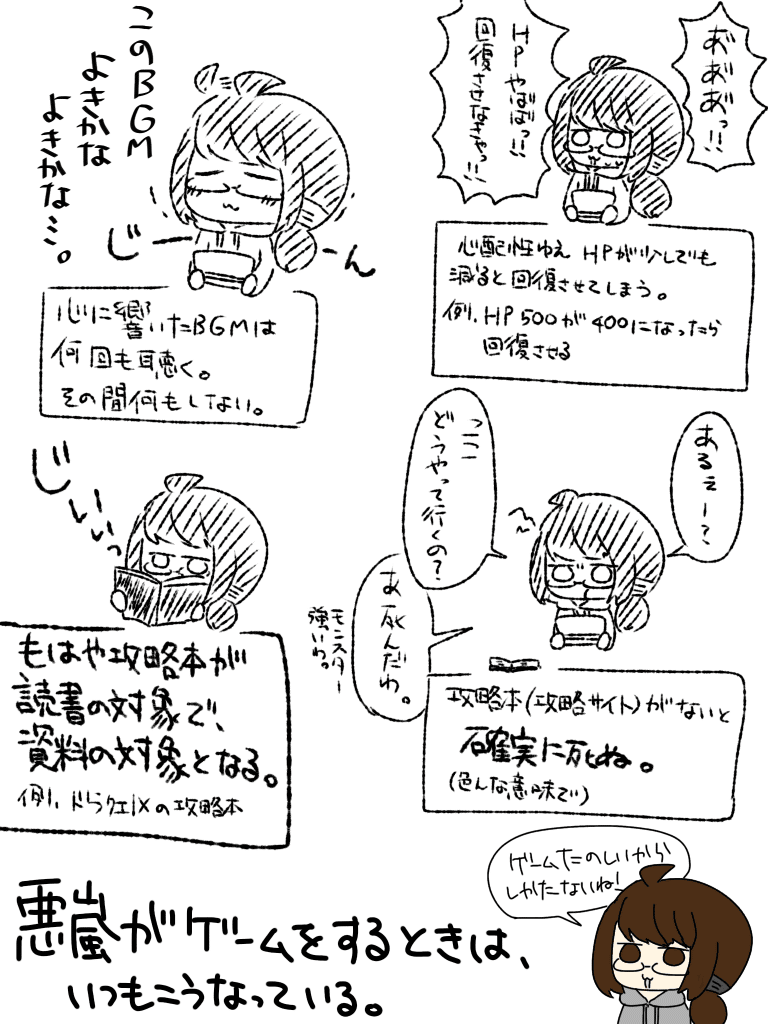 あ゙あ゙あ゙っ!!
HPやばばっ!!
回復させなきゃっ!!
心配性ゆえ HPが少しでも
減ると回復させてしまう。
例. HP500が400になったら
回復させる
このBGM
よきかな
よきかな…。
じーーん
心に響いたBGMは
何回も聴く。
その間何もしない。
あるぇー?
っここ
どうやって行くの?
あ 死んだわ。
モンスター
強いわ。
攻略本(攻略サイト)がないと
確実に死ぬ。
(色んな意味で)
じぃぃっ
もはや攻略本が
読書の対象で、
資料の対象となる。
例. ドラクエIXの攻略本
ゲームたのしいから
しかたないね!
悪嵐がゲームをするときは、
いつもこうなっている。